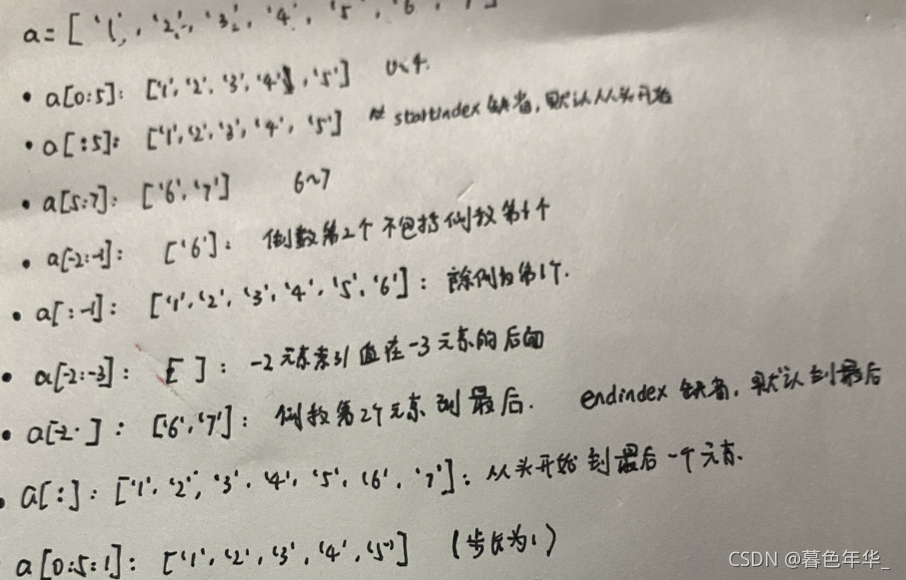 a=['1','2','3','4','5','6','7']
• a[0:5]: ['1','2','3','4','5'] 0~4.
• a[:5]: ['1','2','3','4','5'] # startindex 缺省,默认从头开始
• a[5:7]: ['6','7'] 6~7
• a[-2:-1]: ['6']: 倒数第2个 不包括倒数第1个
• a[:-1]: ['1','2','3','4','5','6']: 除倒数第1个.
• a[-2:-3]: [ ]: -2元素索引值在-3元素的后面
• a[-2:]: ['6','7']: 倒数第2个元素到最后. endindex 缺省,默认到最后
• a[:]: ['1','2','3','4','5','6','7']: 从头开始到最后一个元素.
a[0:5:1]: ['1','2','3','4','5'] (步长为1)
CSDN @暮色年华_